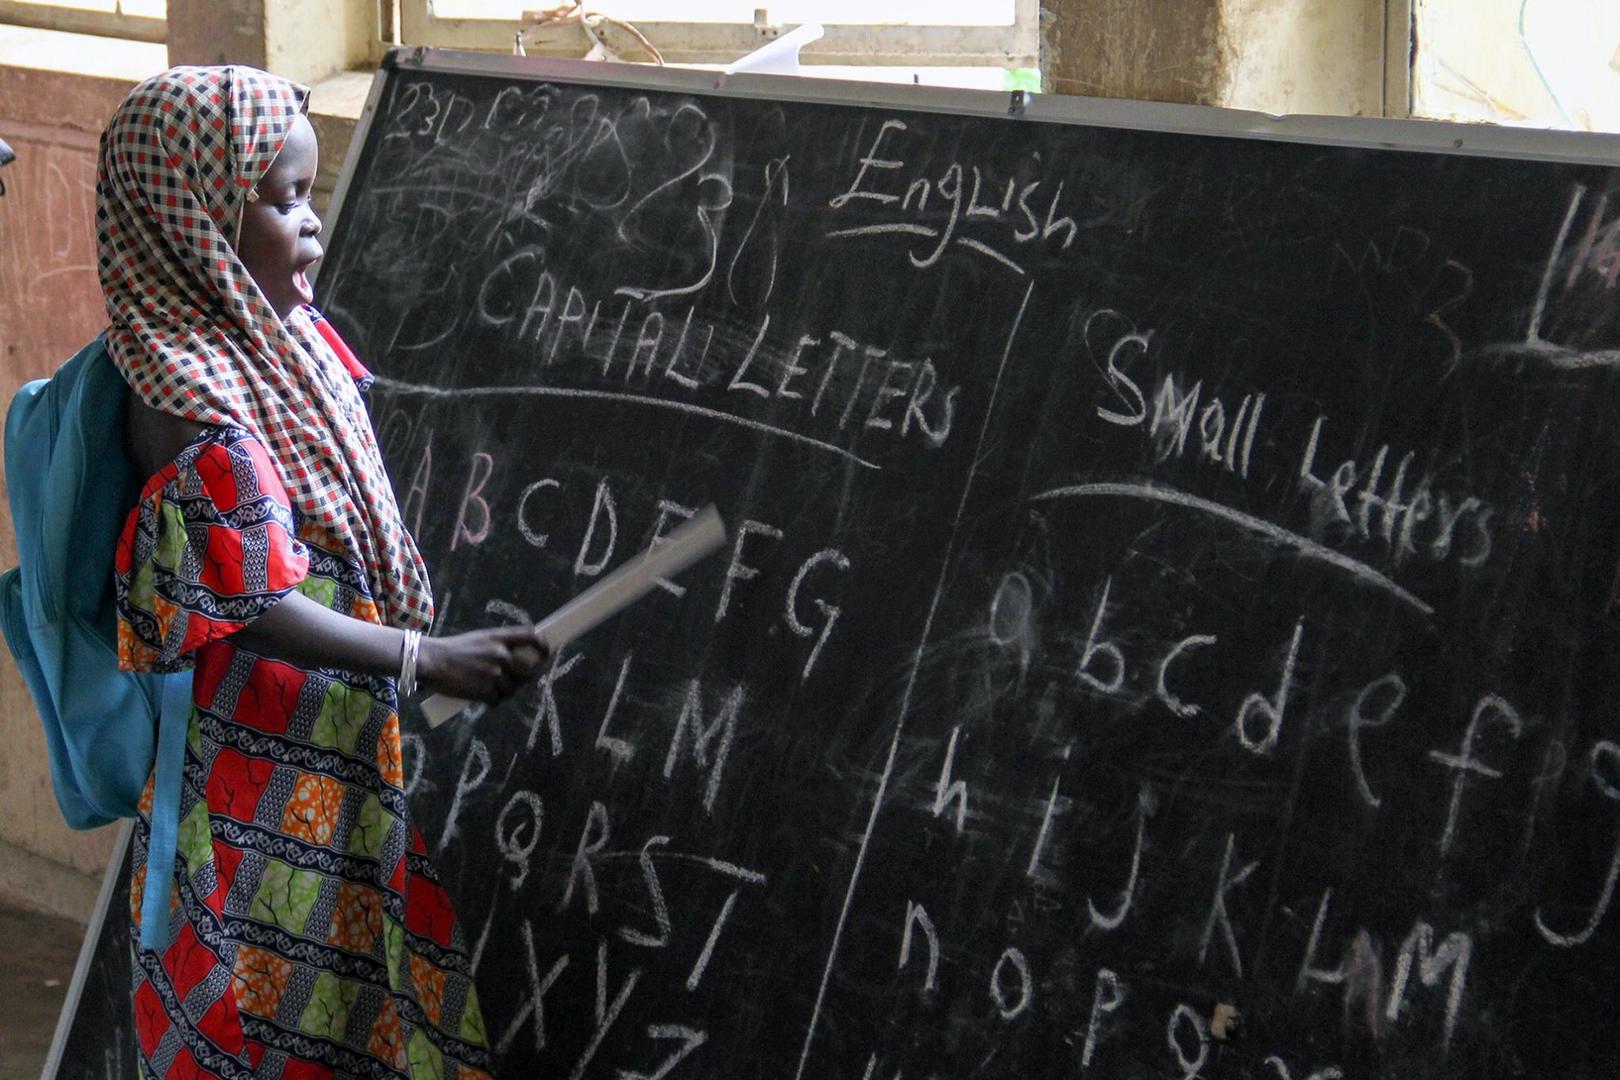 English
CAPITALL LETTERS
A B C D E F G
K L M
P Q R S T
X Y Z
Small Letters
a b c d e f g
h i j k L M
n o p q